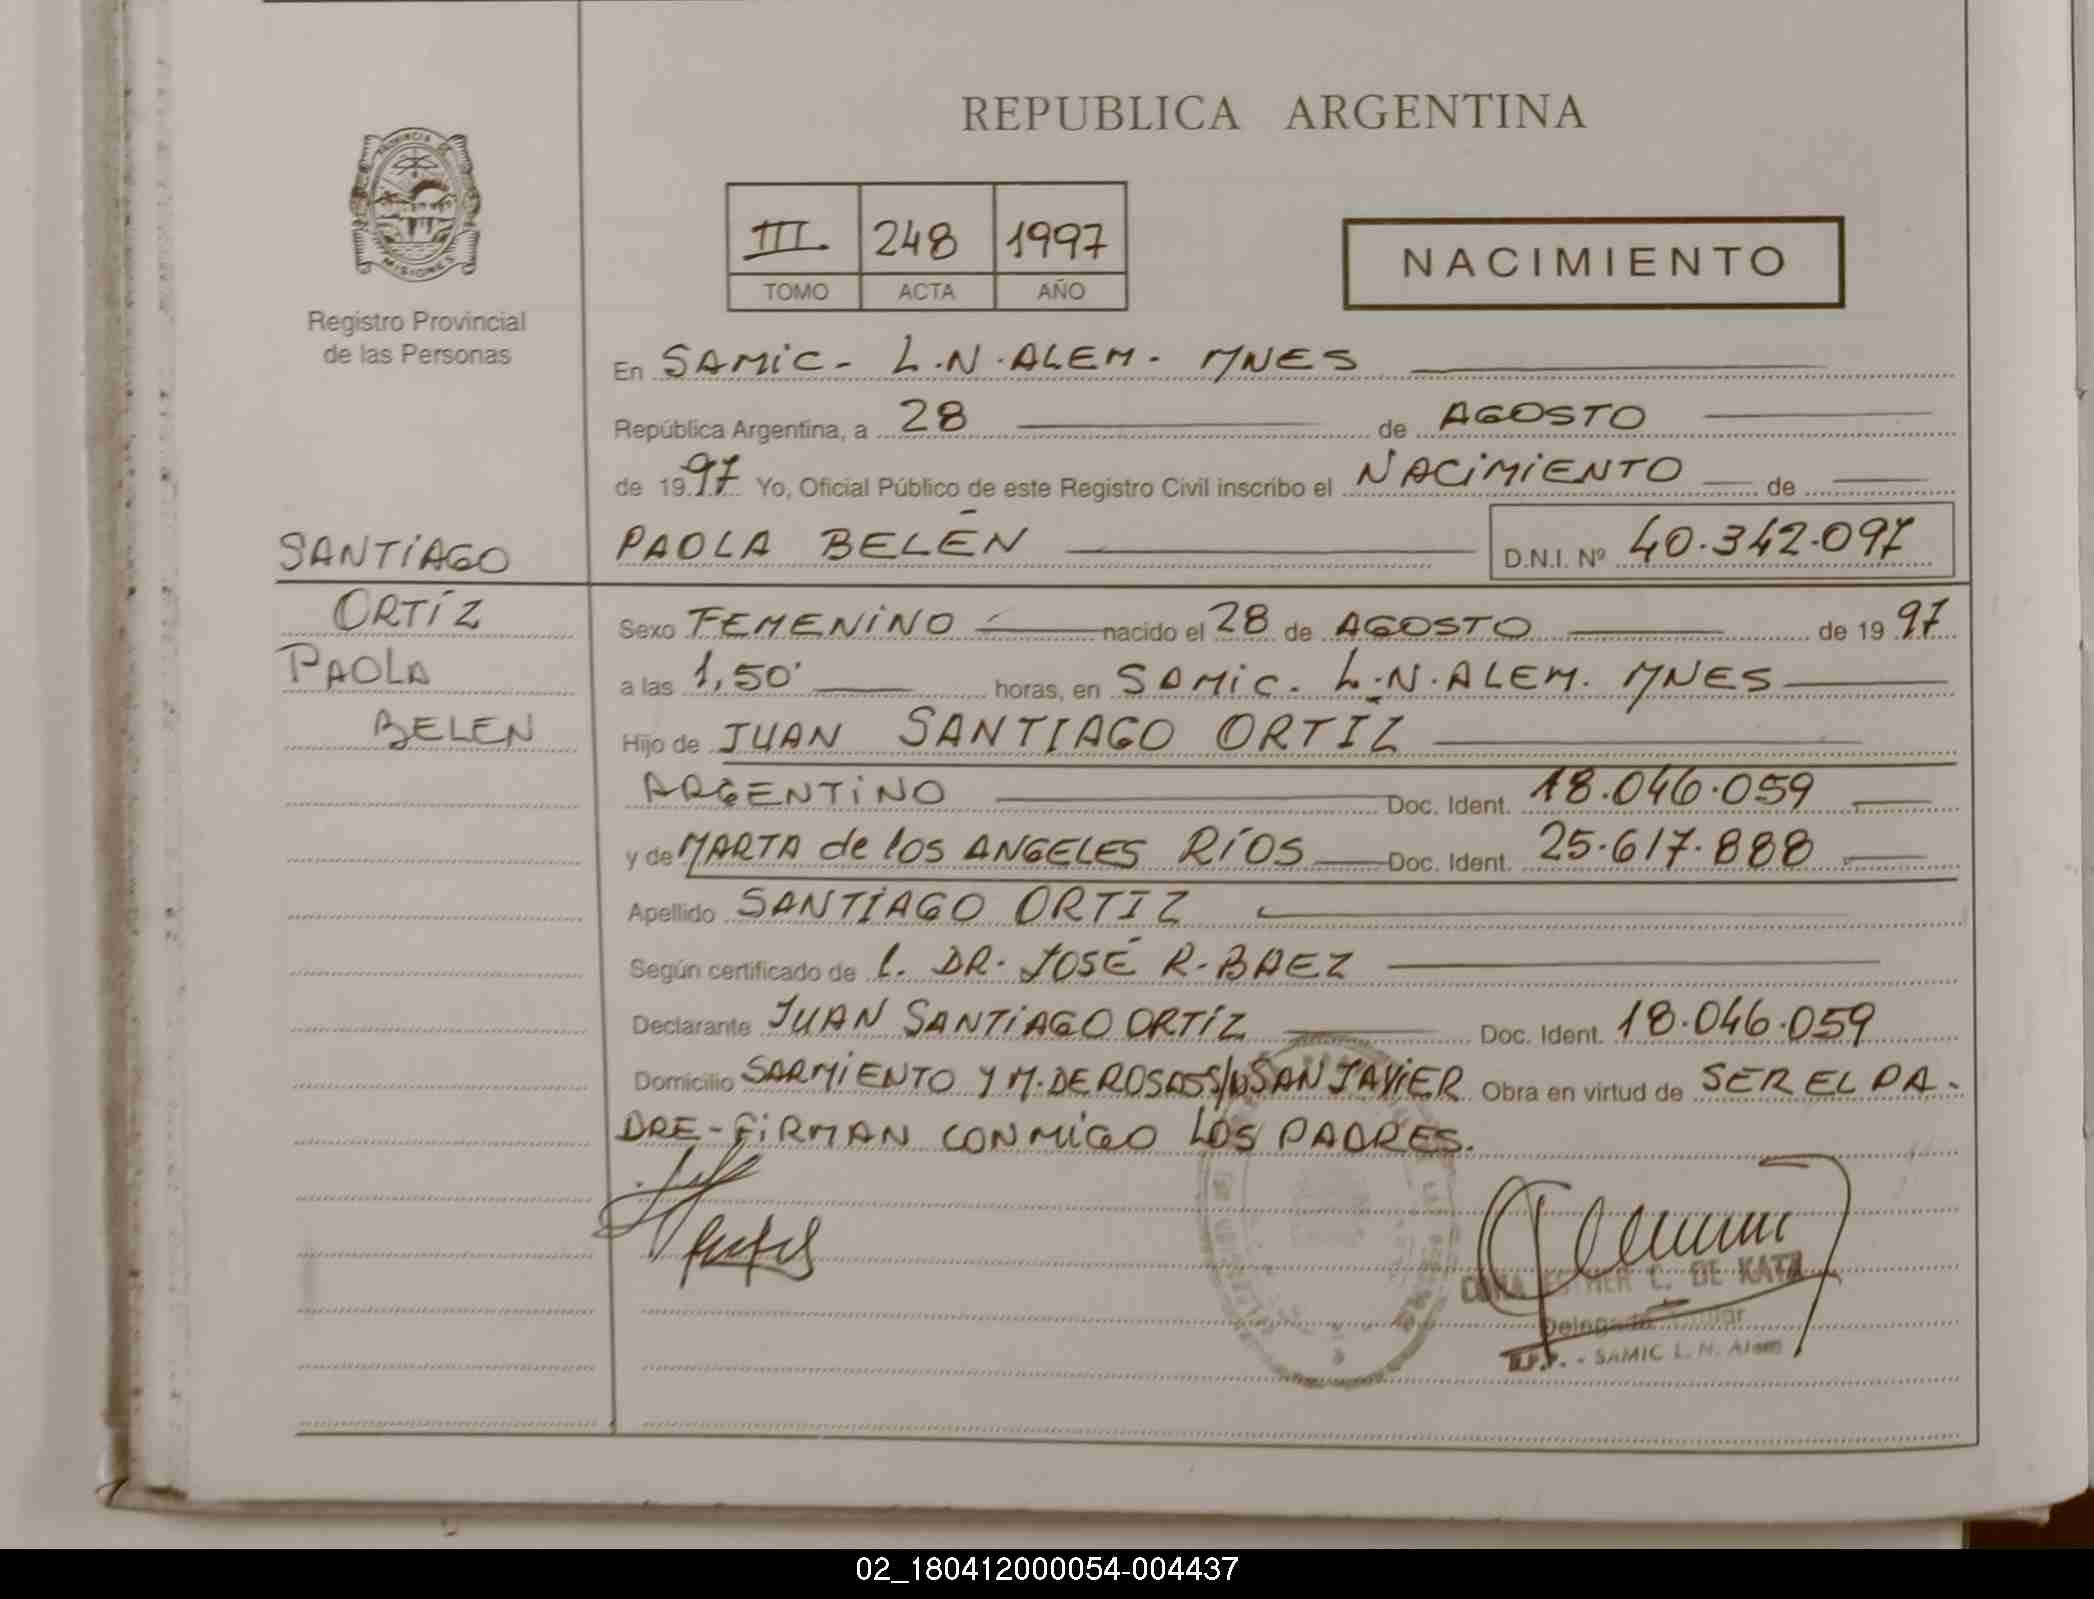 REPUBLICA ARGENTINA
PROVINCIA DE
MISIONES
Registro Provincial
de las Personas
III 248 1997
TOMO ACTA AÑO
NACIMIENTO
En SAMIC - L.N. ALEM - MNES
República Argentina, a 28 de AGOSTO
de 1997 Yo, Oficial Público de este Registro Civil inscribo el NACIMIENTO de
PAOLA BELÉN D.N.I. Nº 40.342.097
SANTIAGO
ORTÍZ
PAOLA
BELEN
Sexo FEMENINO nacido el 28 de AGOSTO de 1997
a las 1,50' horas, en SAMIC. L.N. ALEM. MNES
Hijo de JUAN SANTIAGO ORTÍZ
ARGENTINO Doc. Ident. 18.046.059
y de MARTA de los ANGELES RÍOS Doc. Ident. 25.617.888
Apellido SANTIAGO ORTIZ
Según certificado de l. DR. JOSÉ R. BAEZ
Declarante JUAN SANTIAGO ORTÍZ Doc. Ident. 18.046.059
Domicilio SARMIENTO Y M. DE ROSAS S/N SAN JAVIER Obra en virtud de SER EL PA-
DRE - FIRMAN CONMIGO LOS PADRES.
ESTHER C. DE KATZ
Delegada Titular
R.P.P. - SAMIC L. N. Alem
02_180412000054-004437